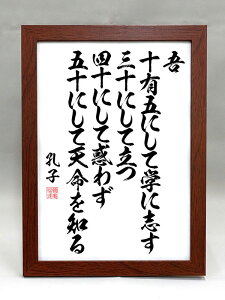 吾
十有五にして学に志す
三十にして立つ
四十にして惑わず
五十にして天命を知る
孔子